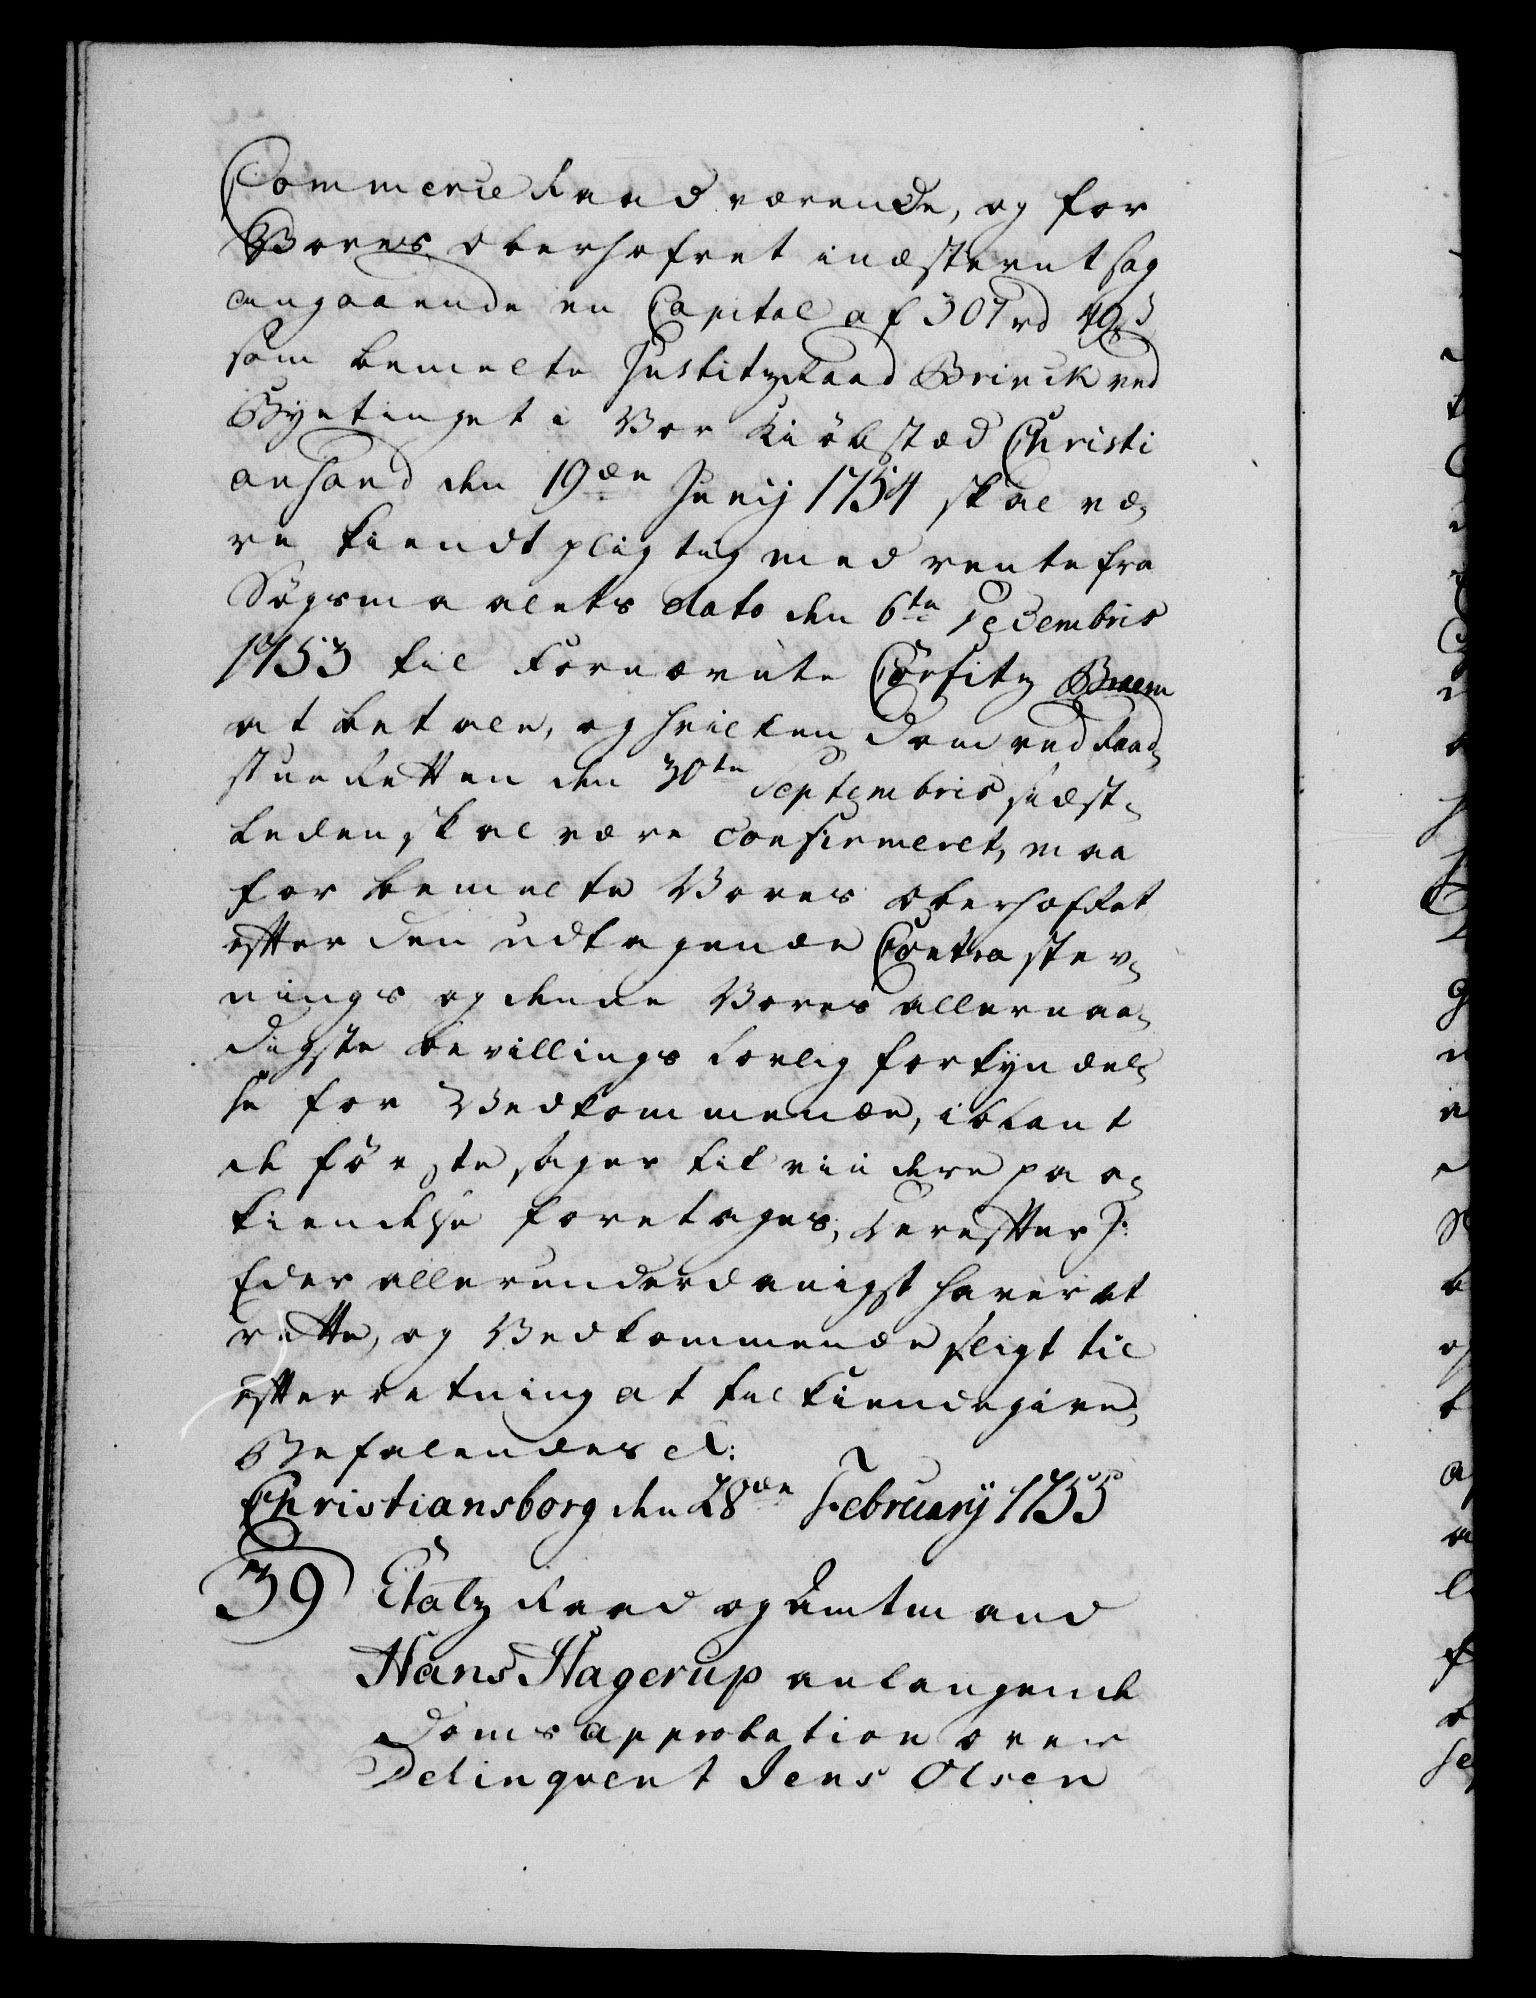 Commerce Raad værende, og for
Vores Oberhofret indstevnt sag
angaaende en Capital af 307 rd 40 s
som bemelte Justitz Raad Brinck ved
Byetinget i Vor Kiøbstæd Christi
ansand den 19de Junij 1754 skal væ,
re kiendt pligtig med rente fra
Søgsmaalets dato den 6te Decembris
1753 til Fornævnte Corfitz Braem
at betale, og hvilken Dom ved Raad,
stue Retten den 30te Septembris sidst,
leden skal være Confirmeret, maa
for bemelte Vores Oberhofret
efter den udtagende Contra stev,
nings og denne Vores allernaa,
digste bevillings lovlig forkyndel,
se for Vedkommende, iblant
de første sager til videre paa,
kiendelse foretages, derefter J:
Eder allerunderdanigst haver at
rette, og Vedkommende sligt til
efterretning at tilkiendegive,
Befalendes etc:
Christiansborg den 28de February 1755
39 Etatz Raad og Amtmand
Hans Hagerup anlangende
Doms approbation over
Delinquent Jens Olsen